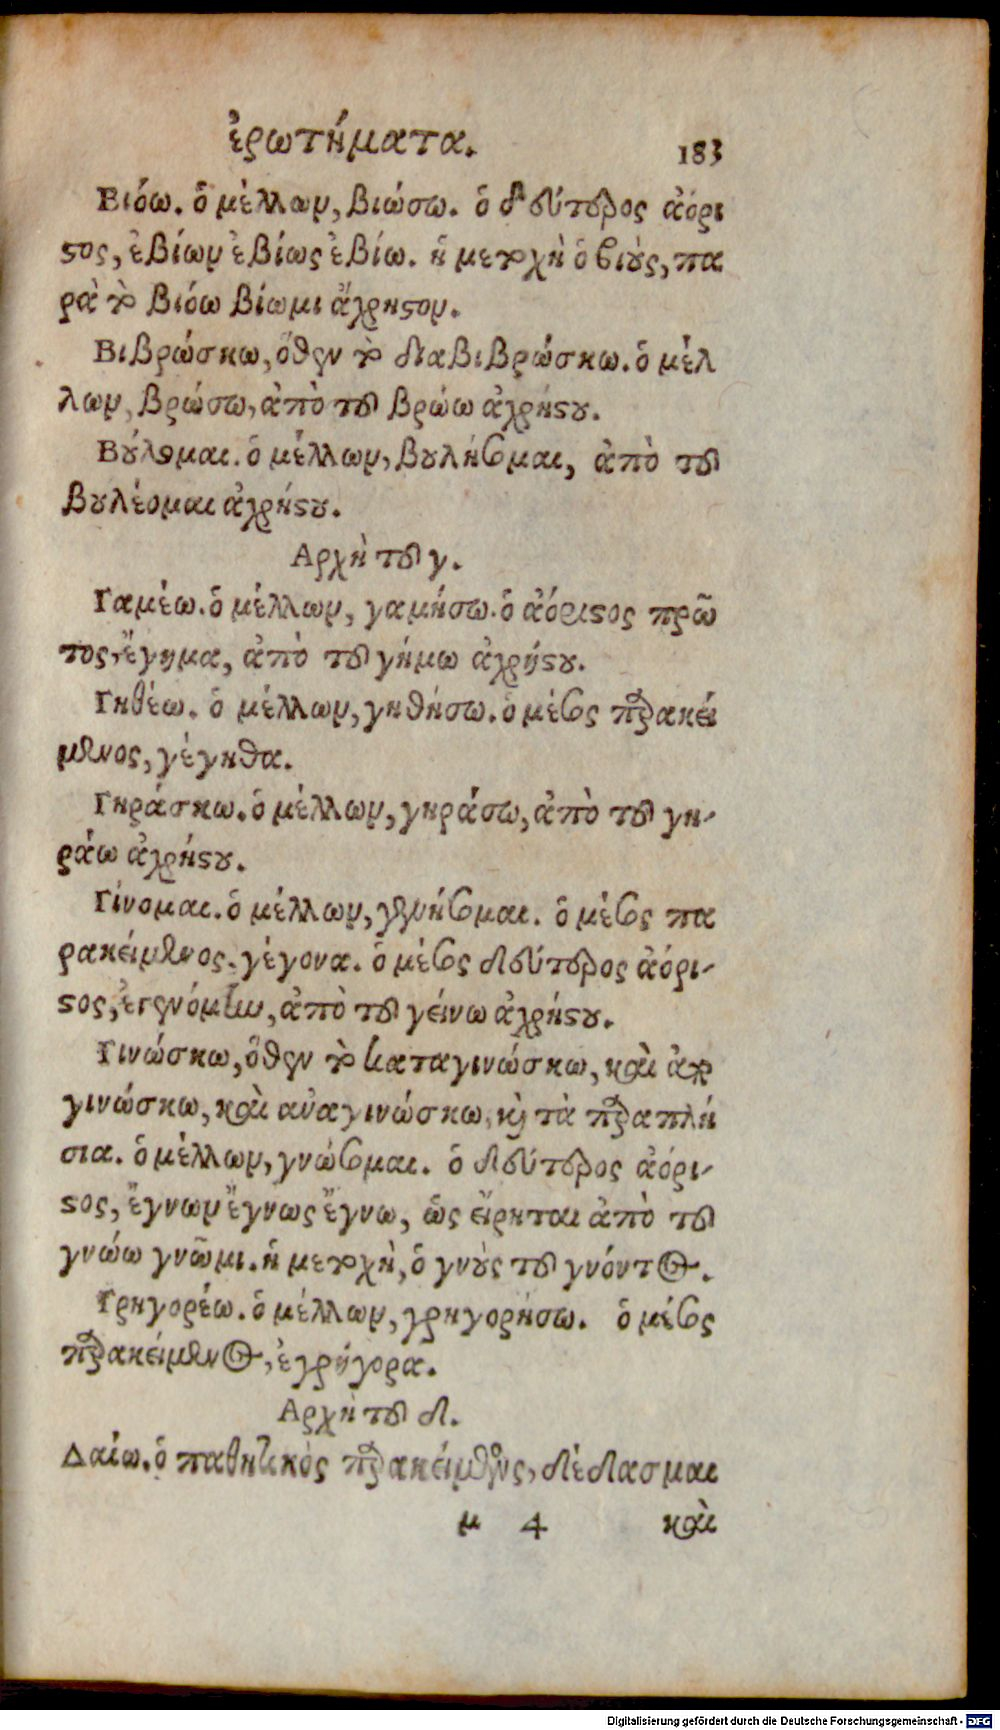 ἐρωτήματα. 183
Βιόω. ὁ μέλλων, βιώσω. ὁ δεύτερος ἀόρι
ϛος, ἐβίων ἐβίως ἐβίω. ἡ μετοχὴ ὁ βιοὺς, πα
ρὰ τὸ βιόω βίωμι ἄχρηϛον.
Βιβρώσκω, ὅθεν τὸ διαβιβρώσκω. ὁ μέλ
λων, βρώσω, ἀπὸ τοῦ βρώω ἀχρήϛου.
Βούλομαι. ὁ μέλλων, βουλήσομαι, ἀπὸ τοῦ
βουλέομαι ἀχρήϛου.
Αρχὴ τοῦ γ.
Γαμέω. ὁ μέλλων, γαμήσω. ὁ ἀόριϛος πρῶ
τος, ἔγημα, ἀπὸ τοῦ γήμω ἀχρήϛου.
Γηθέω. ὁ μέλλων, γηθήσω. ὁ μέσος παρακεί
μενος, γέγηθα.
Γηράσκω. ὁ μέλλων, γηράσω, ἀπὸ τοῦ γη-
ράω ἀχρήϛου.
Γίνομαι. ὁ μέλλων, γενήσομαι. ὁ μέσος πα
ρακείμενος. γέγονα. ὁ μέσος δεύτερος ἀόρι-
ϛος, ἐγενόμην, ἀπὸ τοῦ γείνω ἀχρήϛου.
Γινώσκω, ὅθεν τὸ καταγινώσκω, καὶ ἀπο
γινώσκω, καὶ αὐαγινώσκω, καὶ τὰ παραπλή
σια. ὁ μέλλων, γνώσομαι. ὁ δεύτερος ἀόρι-
ϛος, ἔγνων ἔγνως ἔγνω, ὡς εἴρηται ἀπὸ τοῦ
γνώω γνῶμι. ἡ μετοχὴ, ὁ γνοὺς τοῦ γνόντος.
Γρηγορέω. ὁ μέλλων, γρηγορήσω. ὁ μέσος
παρακείμενος, ἐγρήγορα.
Αρχὴ τοῦ δ.
Δαίω. ὁ παθητικὸς παρακείμενος, δέδασμαι
μ 4 καὶ
Digitalisierung gefördert durch die Deutsche Forschungsgemeinschaft - DFG